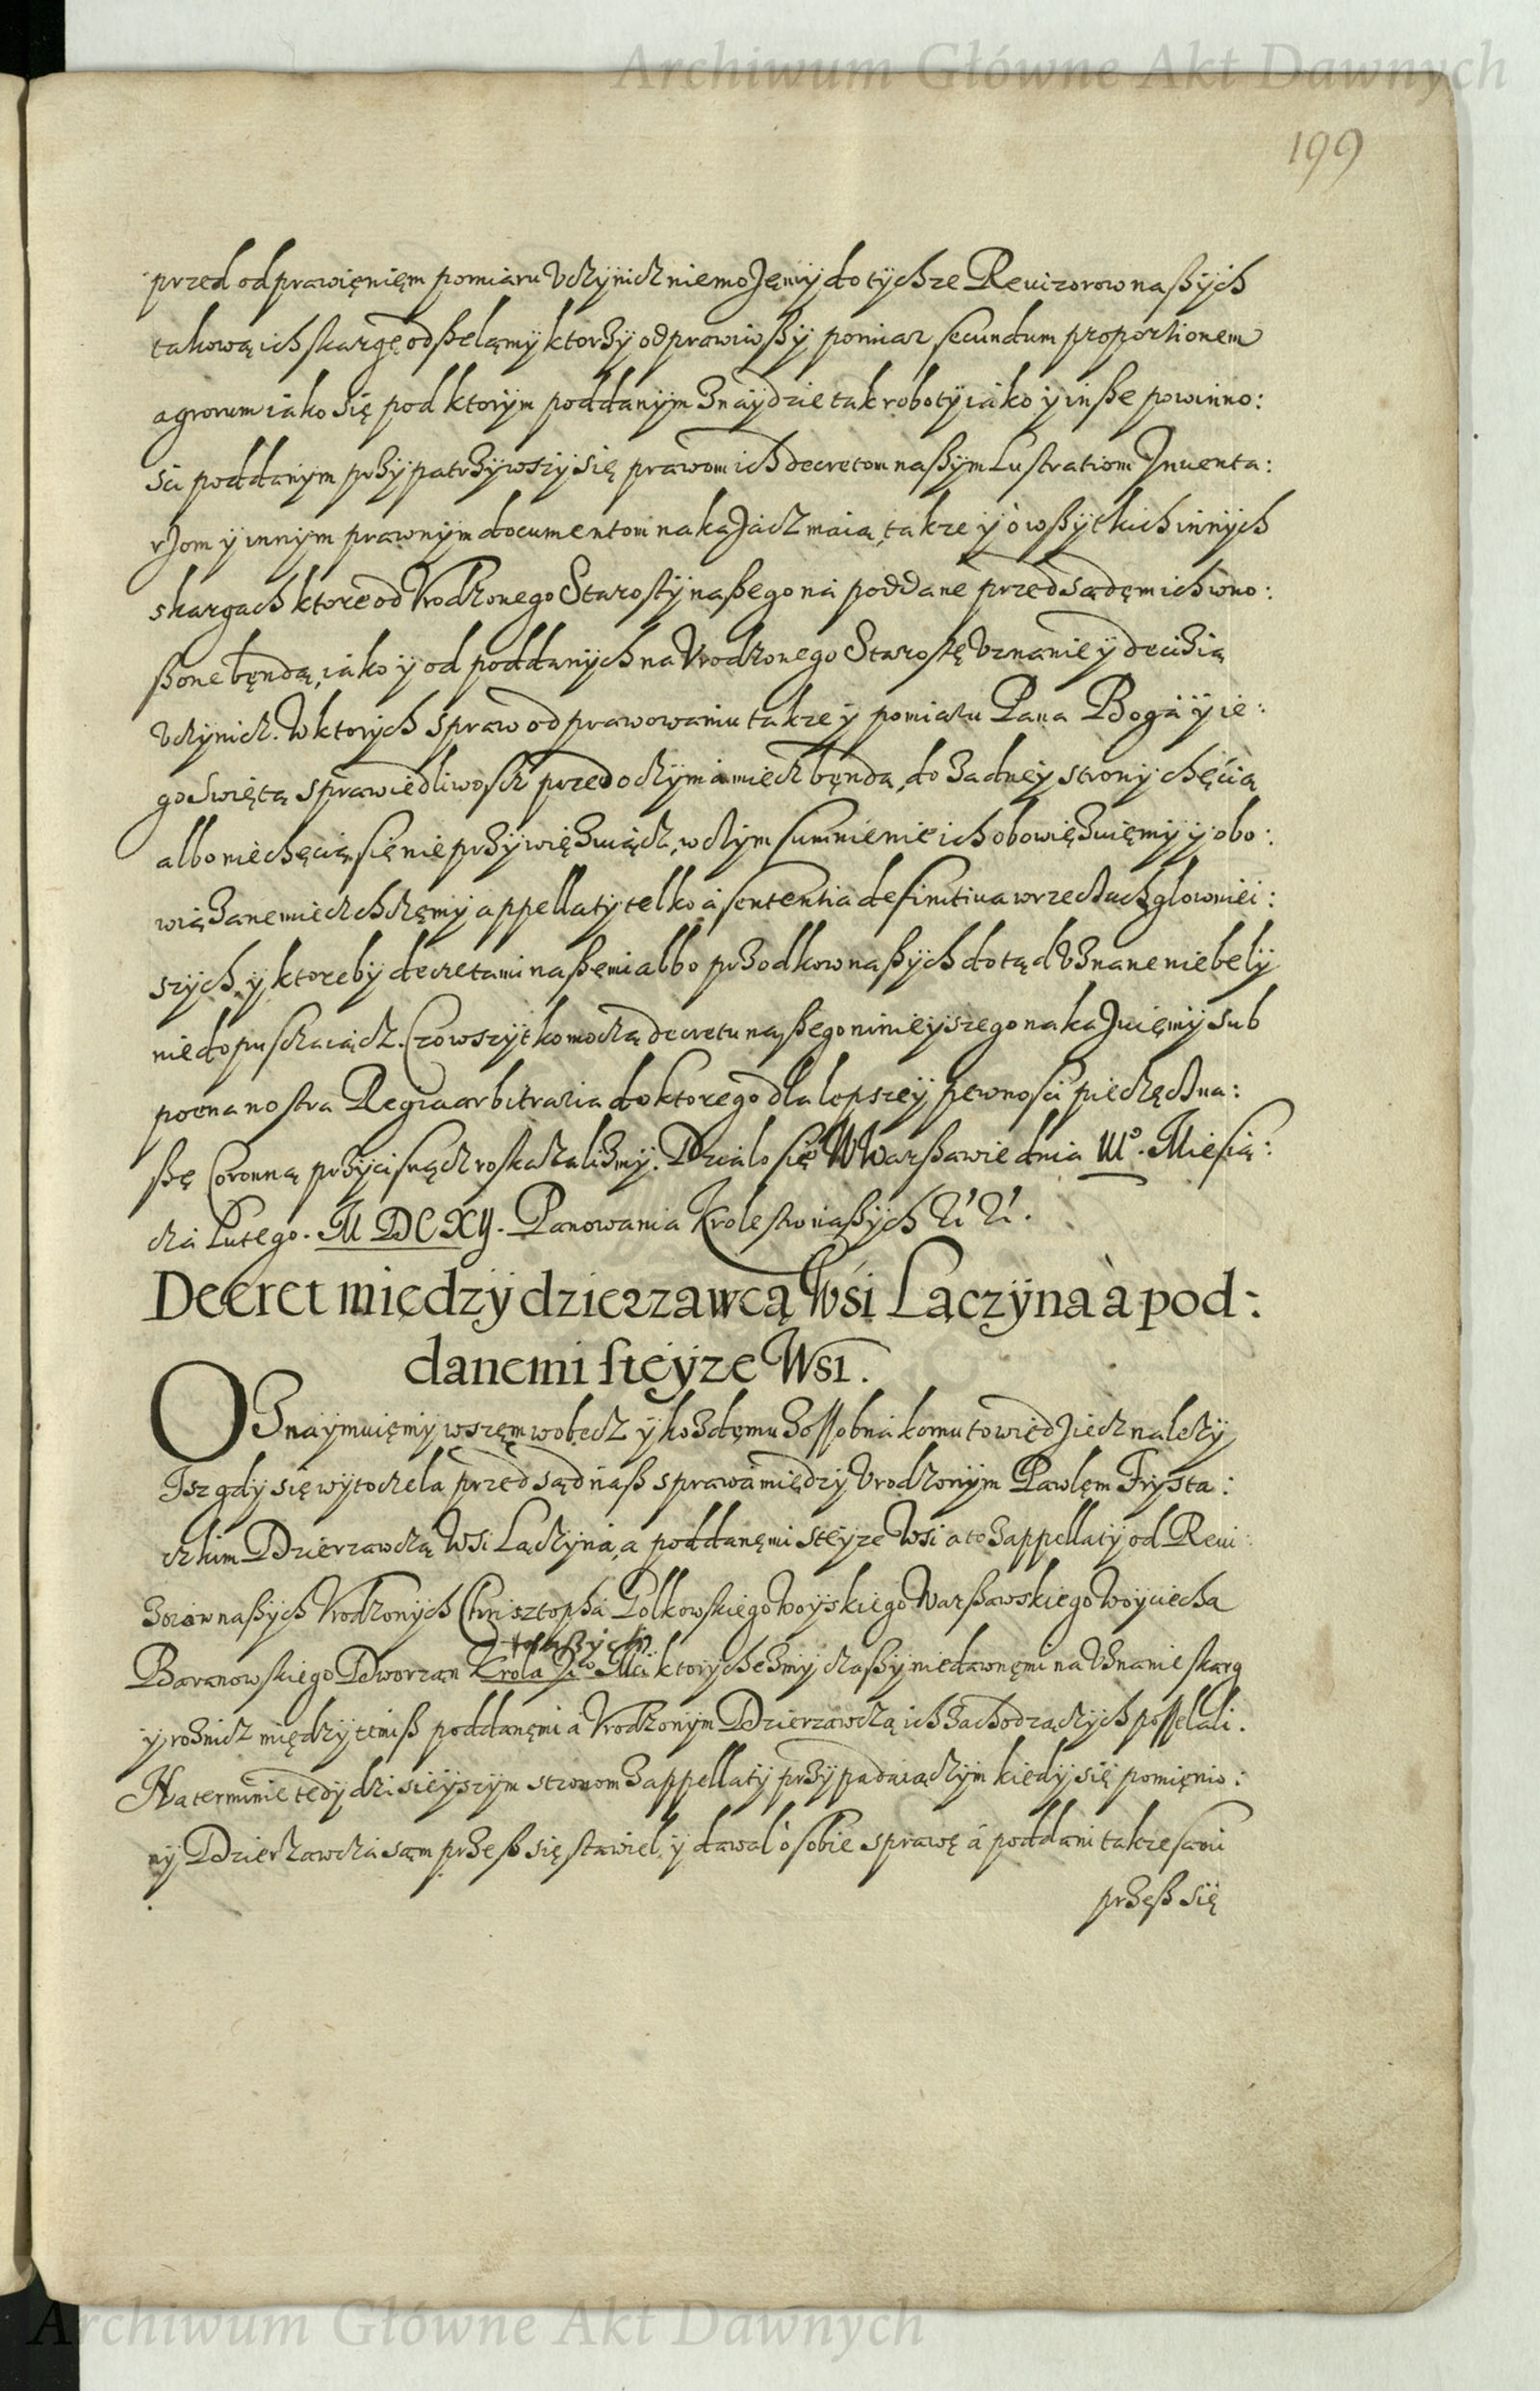 Archiwum Główne Akt Dawnych
199
przed odprawięnięm pomiaru Vczynicz niemożęmy do tychze Reuizorow naßych
takową ich skargę odßelęmy ktorzy odprawiwßy pomiar secundum proportionem
agrorum iako się pod ktorym poddanym znaydzie tak roboty iako y inße powinno:
sci poddanym przypatrzywszy się prawom ich decretom naßym Lustratiom Inuenta:
rJom y innym prawnym documentom nakaJacz maią, takze y o wßytkich innych
skargach ktore od Vrodzonego Starosty naßego na poddane przed sądęm ich wno:
ßone bęndą, iako y od poddanych na Vrodzonego Starostę Vznanie y decizią
Vczynicz. W ktorych spraw odprawowaniu takze y pomiaru Pana Boga y ie:
go swiętą sprawiedliwoscz przed oczyma miecz bęndą, do zadney strony chęcią
albo niechęcią się nie przywięzuiącz, w czym sumnienie ich obowięzuięmy y obo:
wiązane miecz chczęmy appellaty telko a sententia definitiua w rzeczach glowniei:
szych, y ktoreby decretami naßemi albo przodkow naßych dotąd Vznane niebely
niedopusczaiącz. Czo wszytko moczą decretu naßego ninieyszego nakaJuięmy sub
poena nostra Regia arbitraria do ktorego dla lepszey pewnosci pieczęcz na:
ßę Coronną przycisnącz roskazalizmy. Dzialo się W Warßawie dnia III°. Miesią:
cza Lutego. M DC XIJ. Panowania Krolestw naßych Vt Vt.
Decret między dzierzawcą Wsi Lączyna a pod:
danemi steyze Wsi.
Oznaymuięmy wszęm wobecz y kozdęmu zossobna komu to wiedJiecz nalezy
Isz gdy się wytoczela przed sąd naß sprawa między Vrodzonym Pawlęm Trysta:
czkim Dzierzawczą Wsi Lączyna, a poddanęmi steyze Wsi a to z appellaty od Reui:
zorow naßych Vrodzonych Chrisztopha Polkowskiego Woyskiego Warßawskiego Woyciecha
naßych
Baranowskiego Dworzan Krola Je° Mci ktorychezmy czaßy niedawnęmi na Vznanie skarg
y roznicz między temiß poddanęmi a Vrodzonym Dzierzawczą ich zachodzączych posselali.
Na terminie tedy dzisieyszym stronom z appellaty przypadaiączym kiedy się pomięnio:
ny Dzierzawcza sam przeß się stawiel, y dawal o sobie sprawę a poddani takze sami
przeß się
Archiwum Główne Akt Dawnych